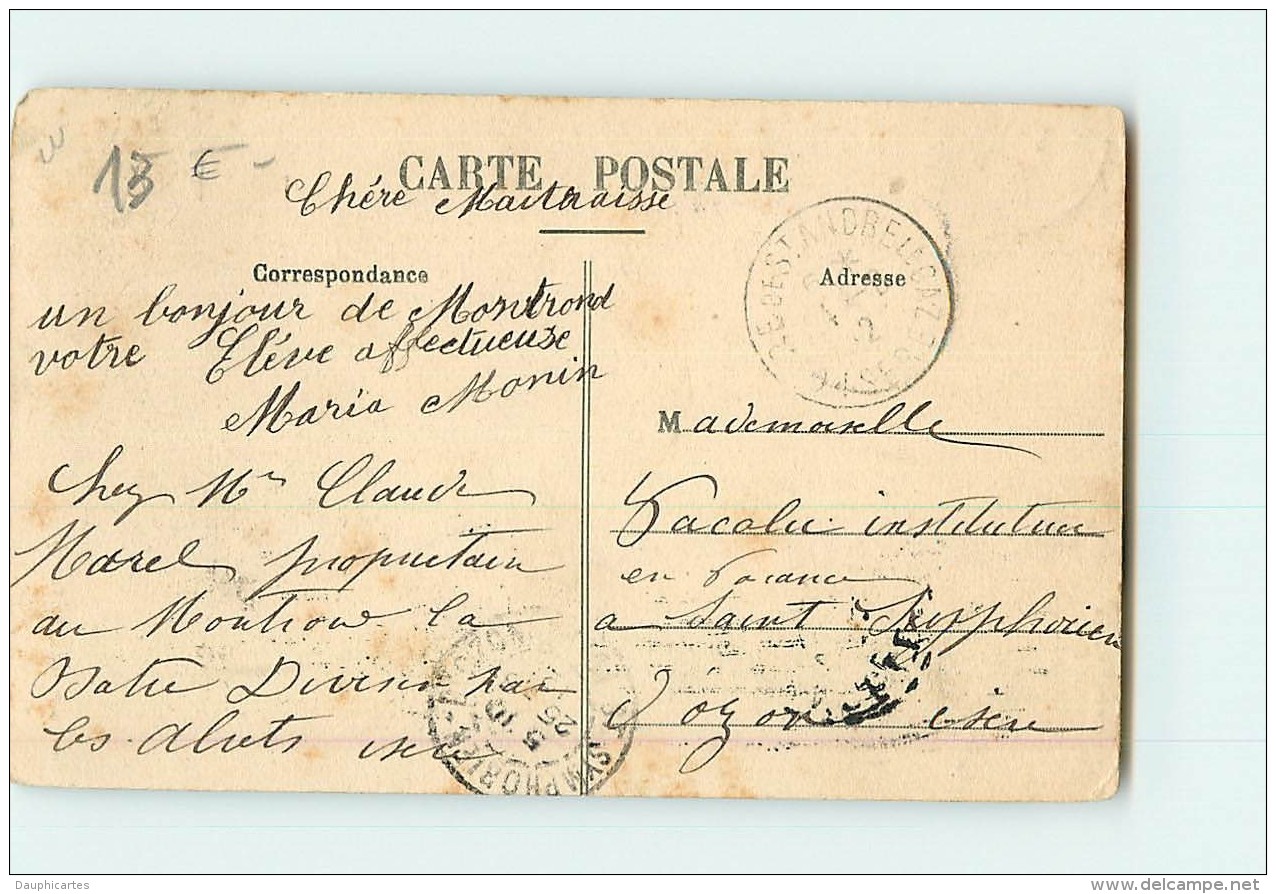 13 € -
CARTE POSTALE
Chére Maitraisse
Correspondance
un bonjour de Montrond
votre Elève affectueuse
Maria Monin
Chez Mr Claude
Marel propriétaire
au Montrond la
par
les abrets isère
Adresse
Mademoiselle
institutrice
en vacance
a Saint Symphorien
d'Ozon isère
SYMPHORIEN
Dauphicartes
www.delcampe.net